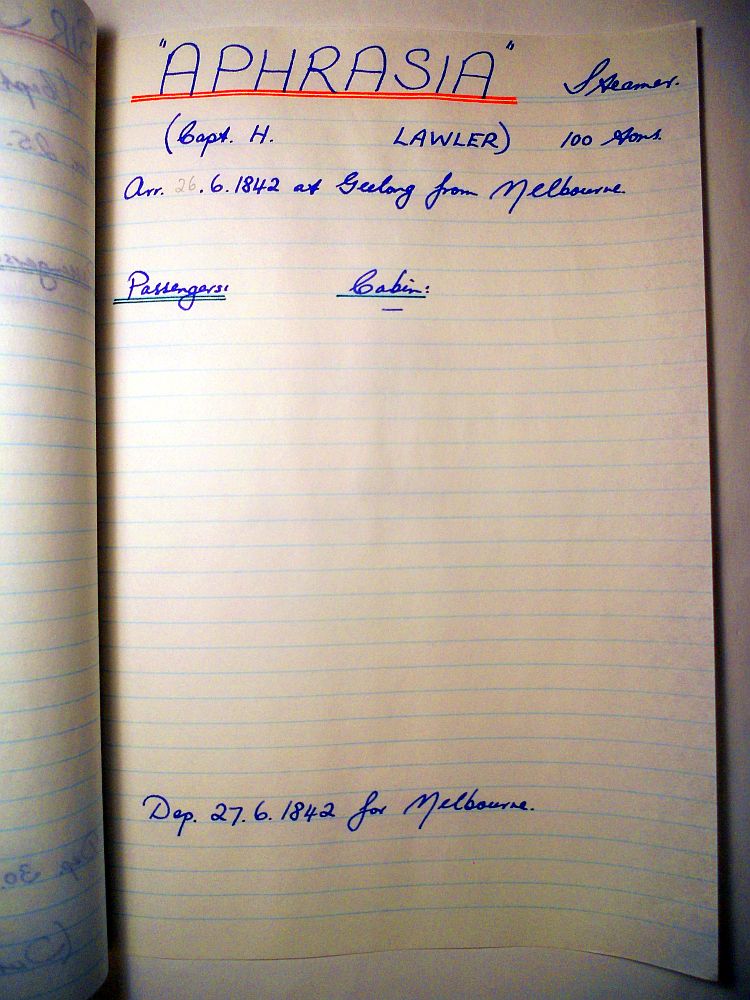 "APHRASIA" Steamer.
(Capt. H. LAWLER) 100 tons.
Arr. 26.6.1842 at Geelong from Melbourne.
Passengers: Cabin:
—
Dep. 27.6.1842 for Melbourne.